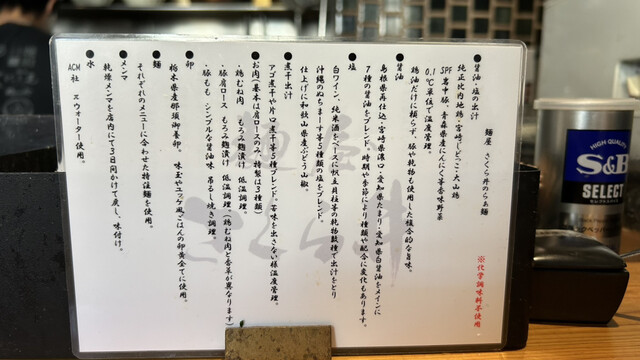 麺屋 さくら井のらぁ麺
●醤油・塩の出汁
純正比内地鶏・宮崎じどっこ・大山鶏
SPF岩中豚、青森県産にんにく等香味野菜
0.1℃単位で温度管理。
鶏油だけに頼らず、豚や乾物も使用した複合的な旨味。
●醤油
島根県再仕込・宮崎県濃口・愛知県たまり・愛知県白醤油をメインに
7種の醤油をブレンド。時期や季節により種類や配合に変化もあります。
●塩
白ワイン、純米酒ベースに帆立貝柱等の乾物数種で出汁をとり
沖縄のぬちまーす等5種類の塩をブレンド。
仕上げに和歌山県産ぶどう山椒。
●煮干出汁
アゴ煮干や片口煮干等5種ブレンド。苦味を出さない様温度管理。
●お肉(基本は肩ロースのみ、特製は3種類)
・鶏むね肉 もろみ麹漬け 低温調理。
・豚肩ロース もろみ麹漬け 低温調理。(鶏むね肉と香草が異なります)
・豚もも シンプルな醤油味 吊るし焼き調理。
●卵
栃木県産那須御養卵。 味玉やユッケ風ごはんの卵黄全てに使用。
●麺
それぞれのメニューに合わせた特注麺を使用。
●メンマ
乾燥メンマを店内にて3日間かけて戻し、味付け。
●水
ACM社 エウォーター使用。
※化学調味料不使用。
麺屋
さくら井
HIGH QUALITY
S&B
SELECT